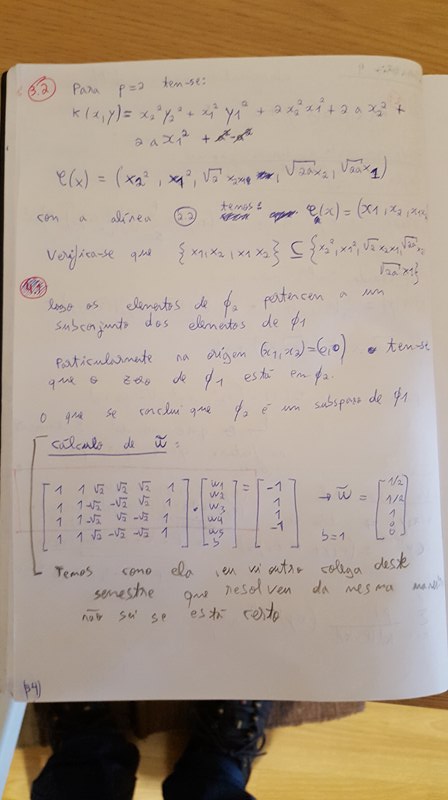 3.2 Para p=2 tem-se:
K(x,y)= x₂²y₂² + x₁² y₁² + 2x₂²x₁² + 2a x₂² +
2 a x1² +
φ(x) = (x₂², x1², √2 x₂x₁, √2a x₂, √2a x1)
con a alínea 2.2 temos: φ(x) = (x1, x2, x1x2
Verifica-se que {x1, x2, x1 x2} ⊆ {x₂², x1², √2 x₂x1, √2a x₂
√2a x1}
4.1
logo os elementos de ϕ₂ pertencem a um
subconjunto dos elementos de ϕ1
Particularmente na origem (x1,x2)=(0,0) tem-se
que o zero de ϕ1 está em ϕ₂.
O que se conclui que ϕ₂ é un subspaço de ϕ1
Cálculo de w̃ :
[1 1 √2 √2 √2 1] [w1] = [-1] → w̃ = [-1/2]
[1 1 -√2 -√2 √2 1] [w2] [1] [1/2]
[1 1 -√2 √2 -√2 1] [w3] [1] [1]
[1 1 √2 -√2 -√2 1] [w4] [-1] [0]
[w5] b=1 [0]
[b]
Temos como ela, eu vi outro colega deste
semestre que resolveu da mesma maneira
não sei se está certo
34)